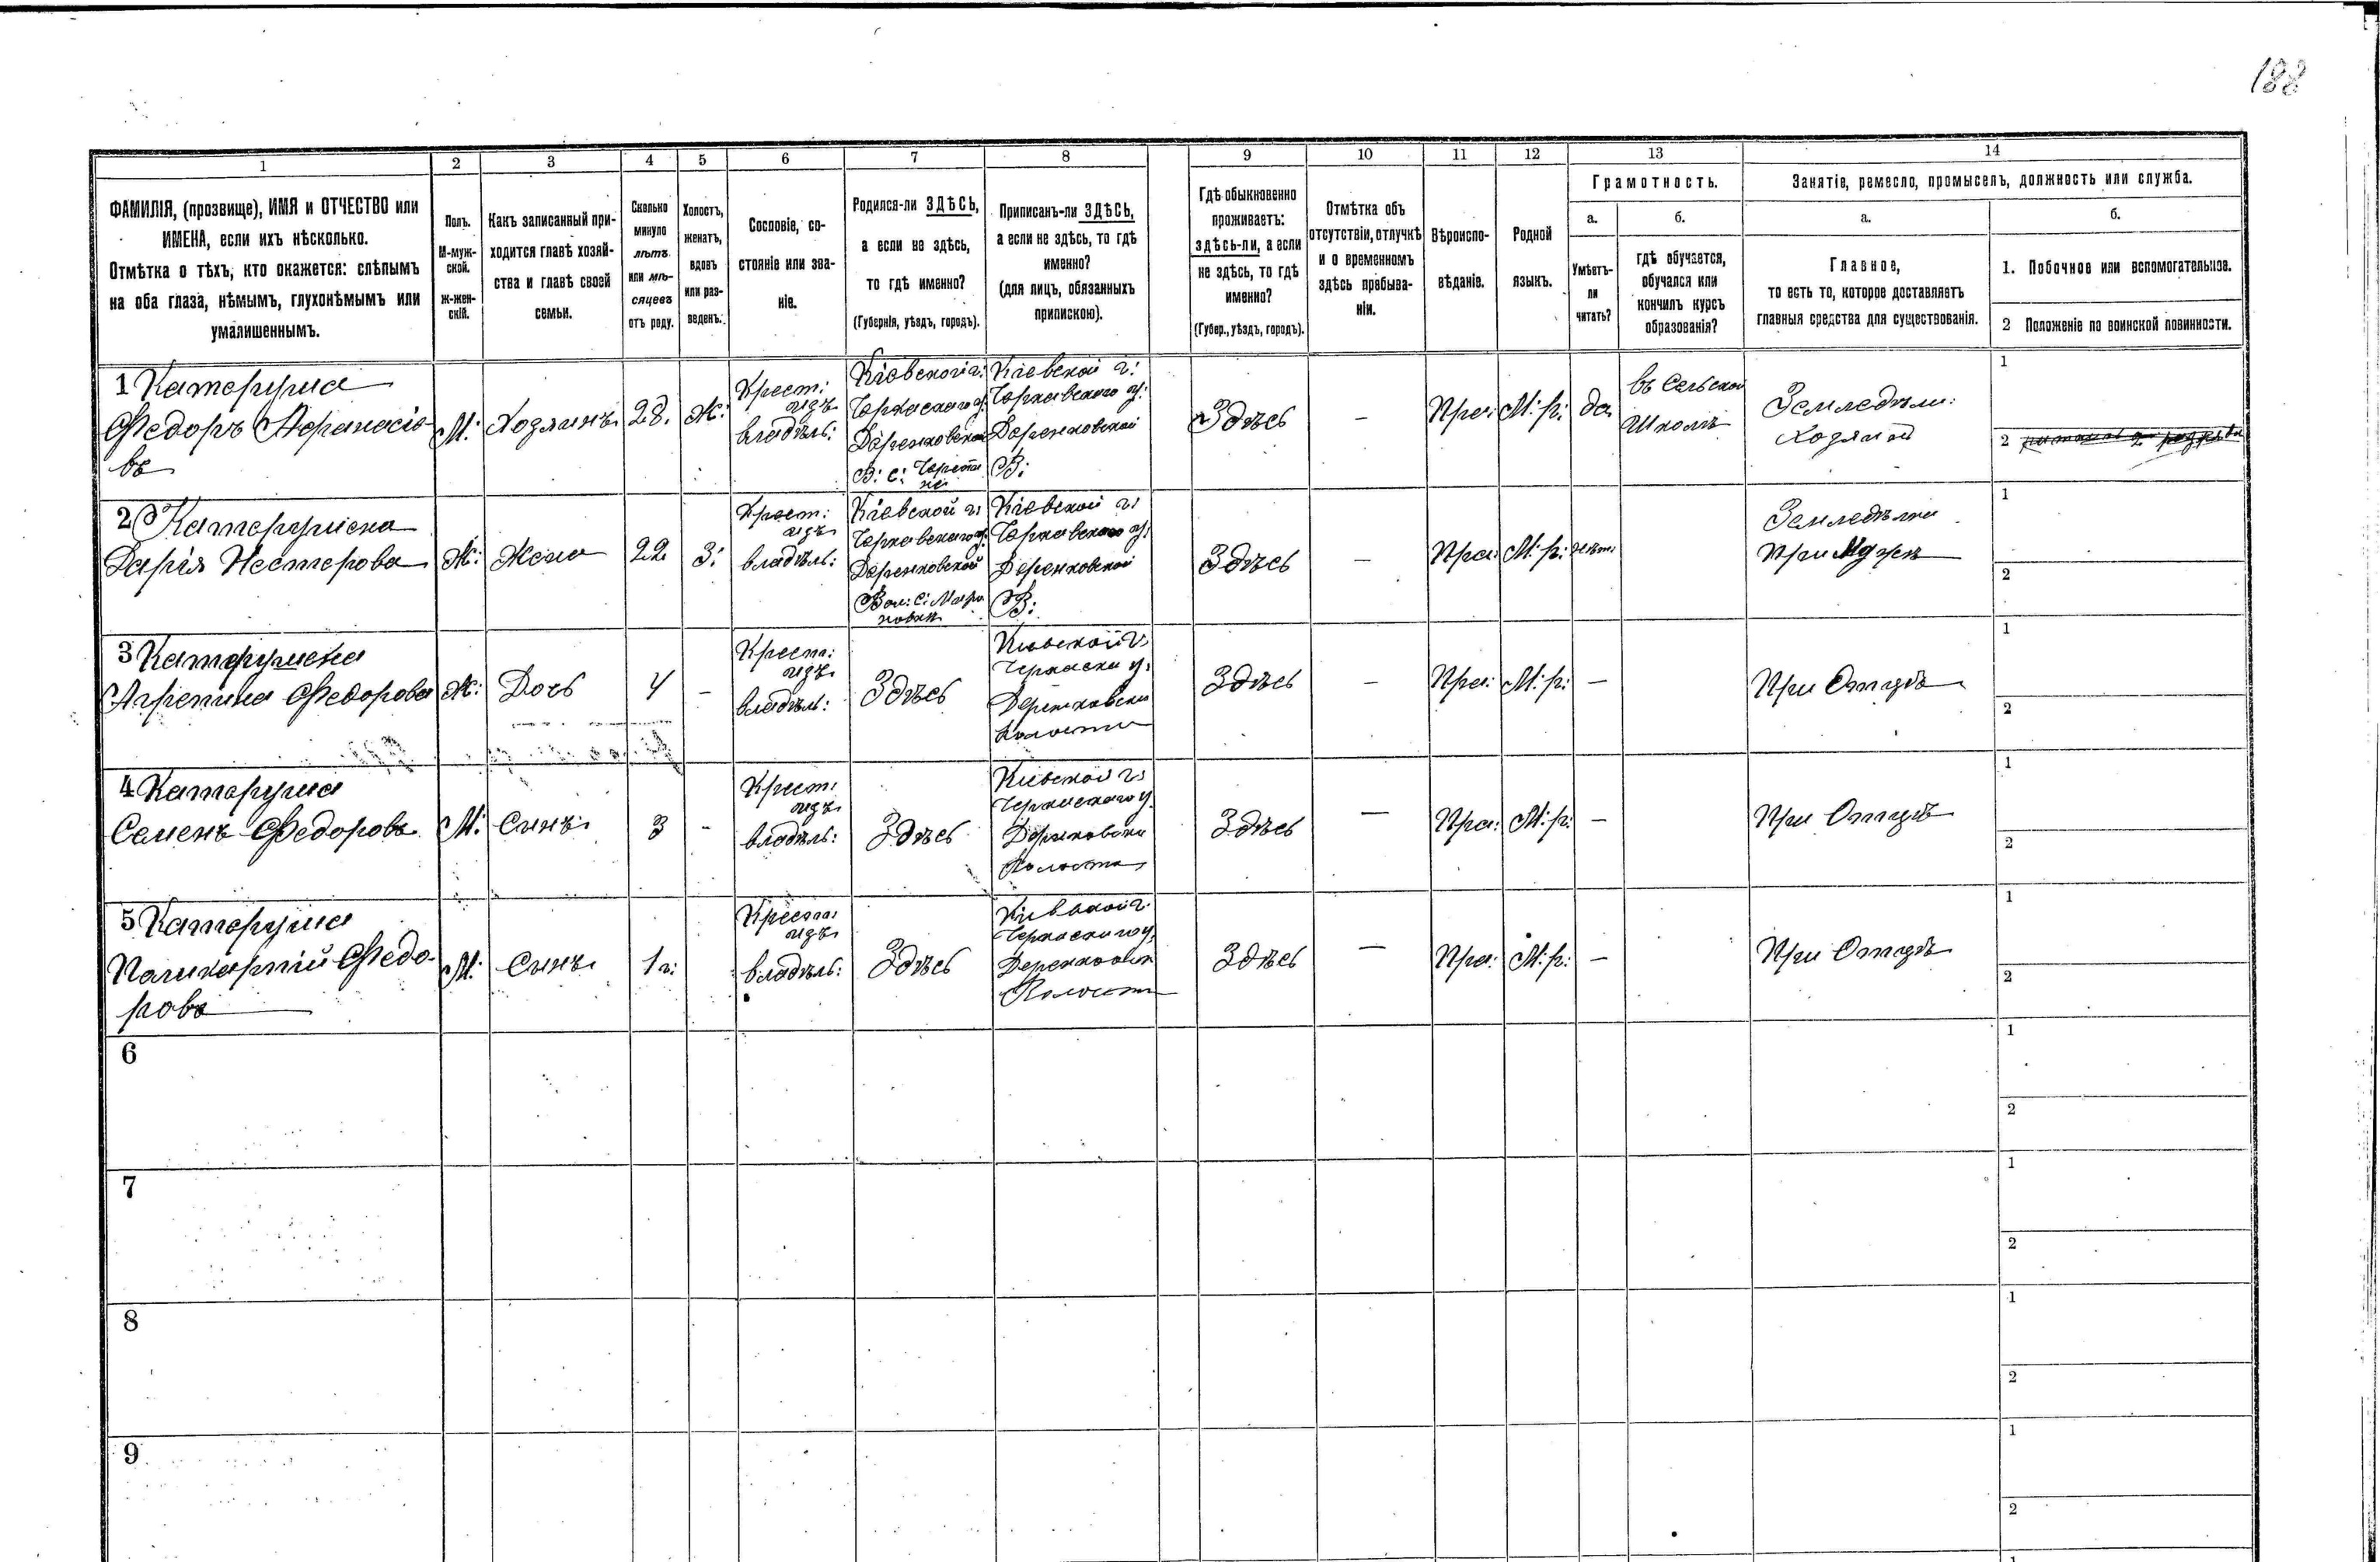 188
1 2 3 4 5 6 7 8 9 10 11 12 13 14
ФАМИЛІЯ, (прозвище), ИМЯ и ОТЧЕСТВО или
ИМЕНА, если ихъ нѣсколько.
Отмѣтка о тѣхъ, кто окажется: слѣпымъ
на оба глаза, нѣмымъ, глухонѣмымъ или
умалишеннымъ.
Полъ.
М-муж-
ской.
ж-жен-
скій.
Какъ записанный при-
ходится главѣ хозяй-
ства и главѣ своей
семьи.
Сколько
минуло
лѣтъ
или мѣ-
сяцевъ
отъ роду.
Холостъ,
женатъ,
вдовъ
или раз-
веденъ.
Сословіе, со-
стояніе или зва-
ніе.
Родился-ли ЗДѢСЬ,
а если не здѣсь,
то гдѣ именно?
(Губернія, уѣздъ, городъ).
Приписанъ-ли ЗДѢСЬ,
а если не здѣсь, то гдѣ
именно?
(для лицъ, обязанныхъ
припискою).
Гдѣ обыкновенно
проживаетъ:
здѣсь-ли, а если
не здѣсь, то гдѣ
именно?
(Губер., уѣздъ, городъ).
Отмѣтка объ
отсутствіи, отлучкѣ
и о временномъ
здѣсь пребыва-
ніи.
Вѣроиспо-
вѣданіе.
Родной
языкъ.
Грамотность.
а.
Умѣетъ-
ли
читать?
б.
гдѣ обучается,
обучался или
кончилъ курсъ
образованія?
Занятіе, ремесло, промыселъ, должность или служба.
а.
Главное,
то есть то, которое доставляетъ
главныя средства для существованія.
б.
1. Побочное или вспомогательное.
2 Положеніе по воинской повинности.
1 Катеруша
Федоръ Афанасіе-
въ
М:
Хозяинъ
28.
Ж:
Крест:
изъ
владѣль:
Кіевской г:
Черкаского у:
Деренковской
В: с:
Кіевской г:
Черкавского у:
Деренковской
В:
Здѣсь
—
Пра:
М: р:
да
въ Сельской
Школѣ
Земледѣли:
Хозяинъ
1
2
2 Катерушена
Дарія Нестерова
Ж:
Жена
22
З:
Крест:
изъ
владѣль:
Кіевской г:
Черкавского у:
Деренковской
Вол: с:
Кіевской г:
Черкавского у:
Деренковской
В:
Здѣсь
—
Пра:
М: р:
нѣт:
При Мужѣ
1
2
3 Катерушена
Агрепина Федорова
Ж:
Дочь
4
-
Крест:
изъ
владѣль:
Здѣсь
Кіевской г:
Здѣсь
—
Пра:
М: р:
—
При Отцѣ
1
2
4 Катеруша
Семенъ Федоровъ
М:
Сынъ
3
-
Крест:
изъ
владѣль:
Здѣсь
Кіевской г:
Черкаского у.
Здѣсь
—
Пра:
М: р:
—
При Отцѣ
1
2
5 Катеруша
Поликарпій Федо-
ровъ
М:
Сынъ
1 г:
Крест:
изъ
владѣль:
Здѣсь
Кіевской г.
Здѣсь
—
Пра:
М: р:
—
При Отцѣ
1
2
6
1
2
7
1
2
8
1
2
9
1
2
1